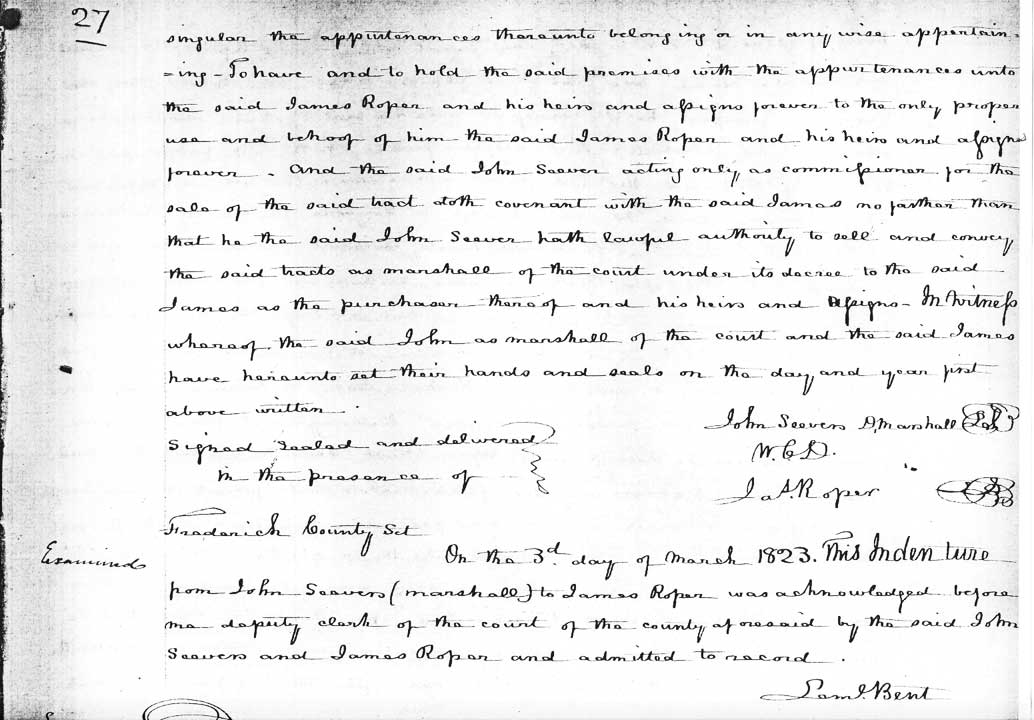 27
singular the appurtenances thereunto belonging or in any wise appertain-
=ing - To have and to hold the said premises with the appurtenances unto
the said James Roper and his heirs and assigns forever to the only proper
use and behoof of him the said James Roper and his heirs and assigns
forever. And the said John Seever acting only as commissioner for the
sale of the said tract doth covenant with the said James no farther than
that he the said John Seever hath lawful authority to sell and convey
the said tracts as marshall of the court under its decree to the said
James as the purchaser thereof and his heirs and assigns - In witness
whereof the said John as marshall of the court and the said James
have hereunto set their hands and seals on the day and year first
above written.
John Seevers D, Marshall
Signed sealed and delivered
W. C. D.
in the presence of
Ja A. Roper
Frederick County Sct
Examined
On the 3d. day of March 1823. This Indenture
from John Seevers (marshall) to James Roper was acknowledged before
me deputy clerk of the court of the county aforesaid by the said John
Seevers and James Roper and admitted to record.
Bent